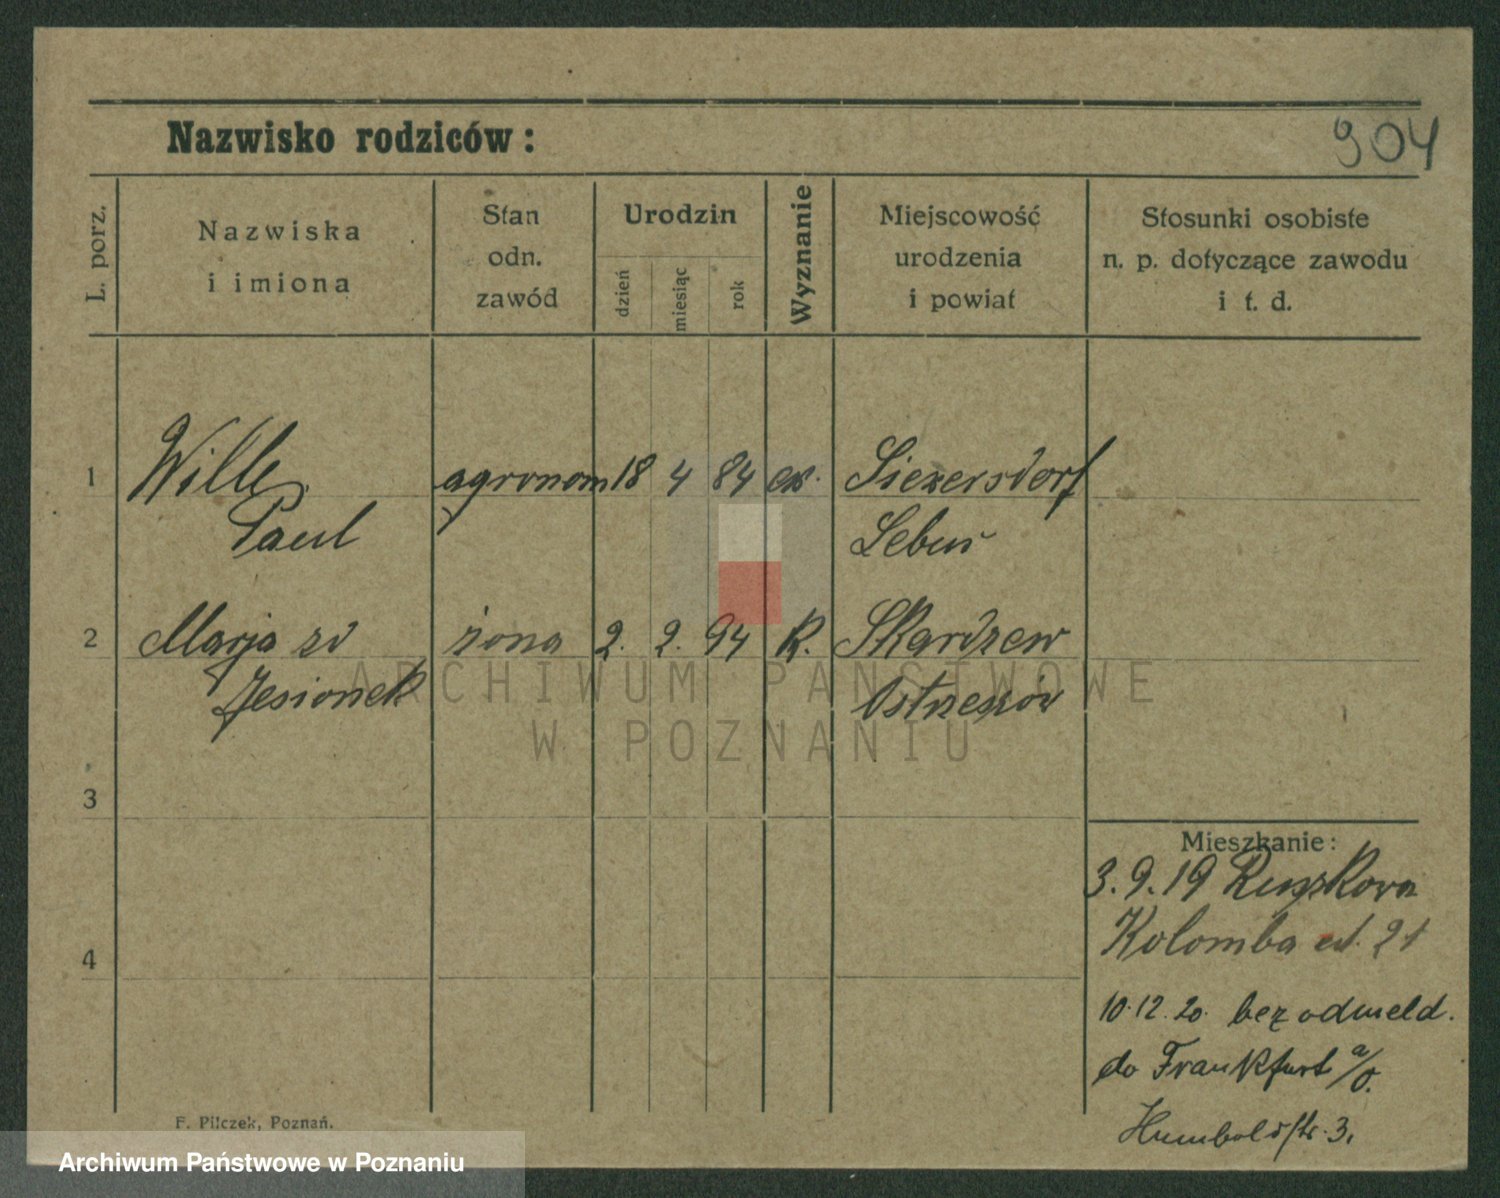 904
Nazwisko rodziców:
L. porz.
Nazwiska
i imiona
Stan
odn.
zawód
Urodzin
dzień
miesiąc
rok
Wyznanie
Miejscowość
urodzenia
i powiat
Stosunki osobiste
n. p. dotyczące zawodu
i t. d.
1 Wille agronom 18 4 84 ew. Siewersdorf
Paul Lebus
2 Marja zd żona 2. 2. 94 k. Skardzew
Jesionek Ostrzeszów
3
4
Mieszkanie:
3.9.19
Kolomba 21
10.12.20. bez odmeld.
do Frankfurt a/O.
Humboldstr. 3.
F. Pilczek, Poznań.
ARCHIWUM PAŃSTWOWE
W POZNANIU
Archiwum Państwowe w Poznaniu